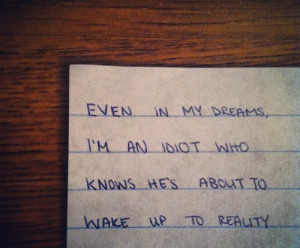 EVEN IN MY DREAMS,
I'M AN IDIOT WHO
KNOWS HE'S ABOUT TO
WAKE UP TO REALITY